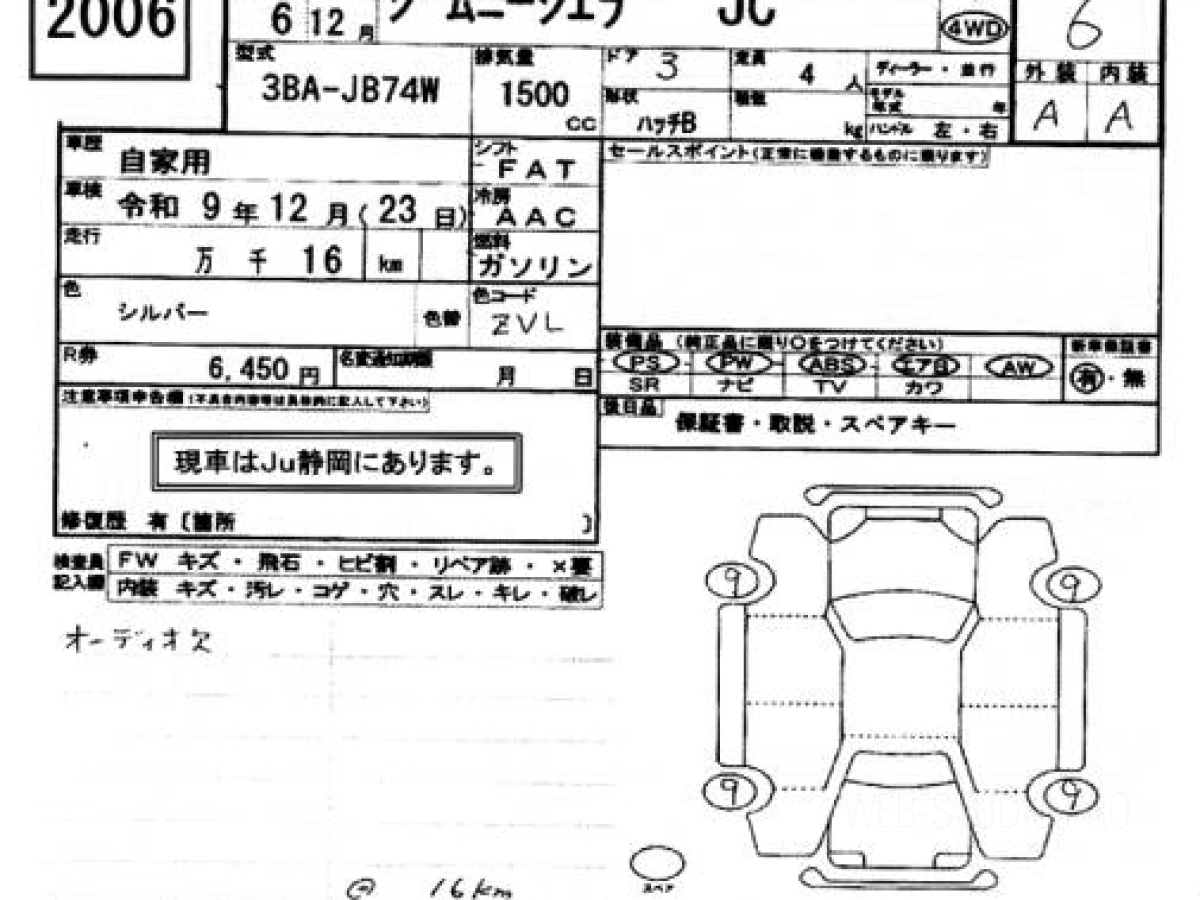 2006
6 12 月
JC
4WD
6
型式
3BA-JB74W
排気量
1500
CC
ドア 3
定員 4 人
形状 ハッチB
kg
ディーラー・並行
モデル年式 年
ハンドル 左・右
外装 内装
A A
車歴
自家用
シフト
FAT
セールスポイント(正常に機能するものに限ります)
車検
令和 9 年 12 月(23 日)
冷房
AAC
走行
万 千 16 km
燃料
ガソリン
色
シルバー
色替
色コード
ZVL
R券
6,450 円
名変通知期限
月 日
装備品 (純正品に限り○をつけてください)
新車保証書
PS PW ABS エアB AW
有・無
SR ナビ TV カワ
後日品
保証書・取説・スペアキー
注意事項申告欄(不具合内容等は具体的に記入して下さい)
現車はJu静岡にあります。
修復歴 有〔箇所 〕
検査員記入欄
FW キズ・飛石・ヒビ割・リペア跡・×要
内装 キズ・汚レ・コゲ・穴・スレ・キレ・破レ
オーディオ欠
9 9
9 9
スペア
@ 16km
WEB-STUDIO.PRO